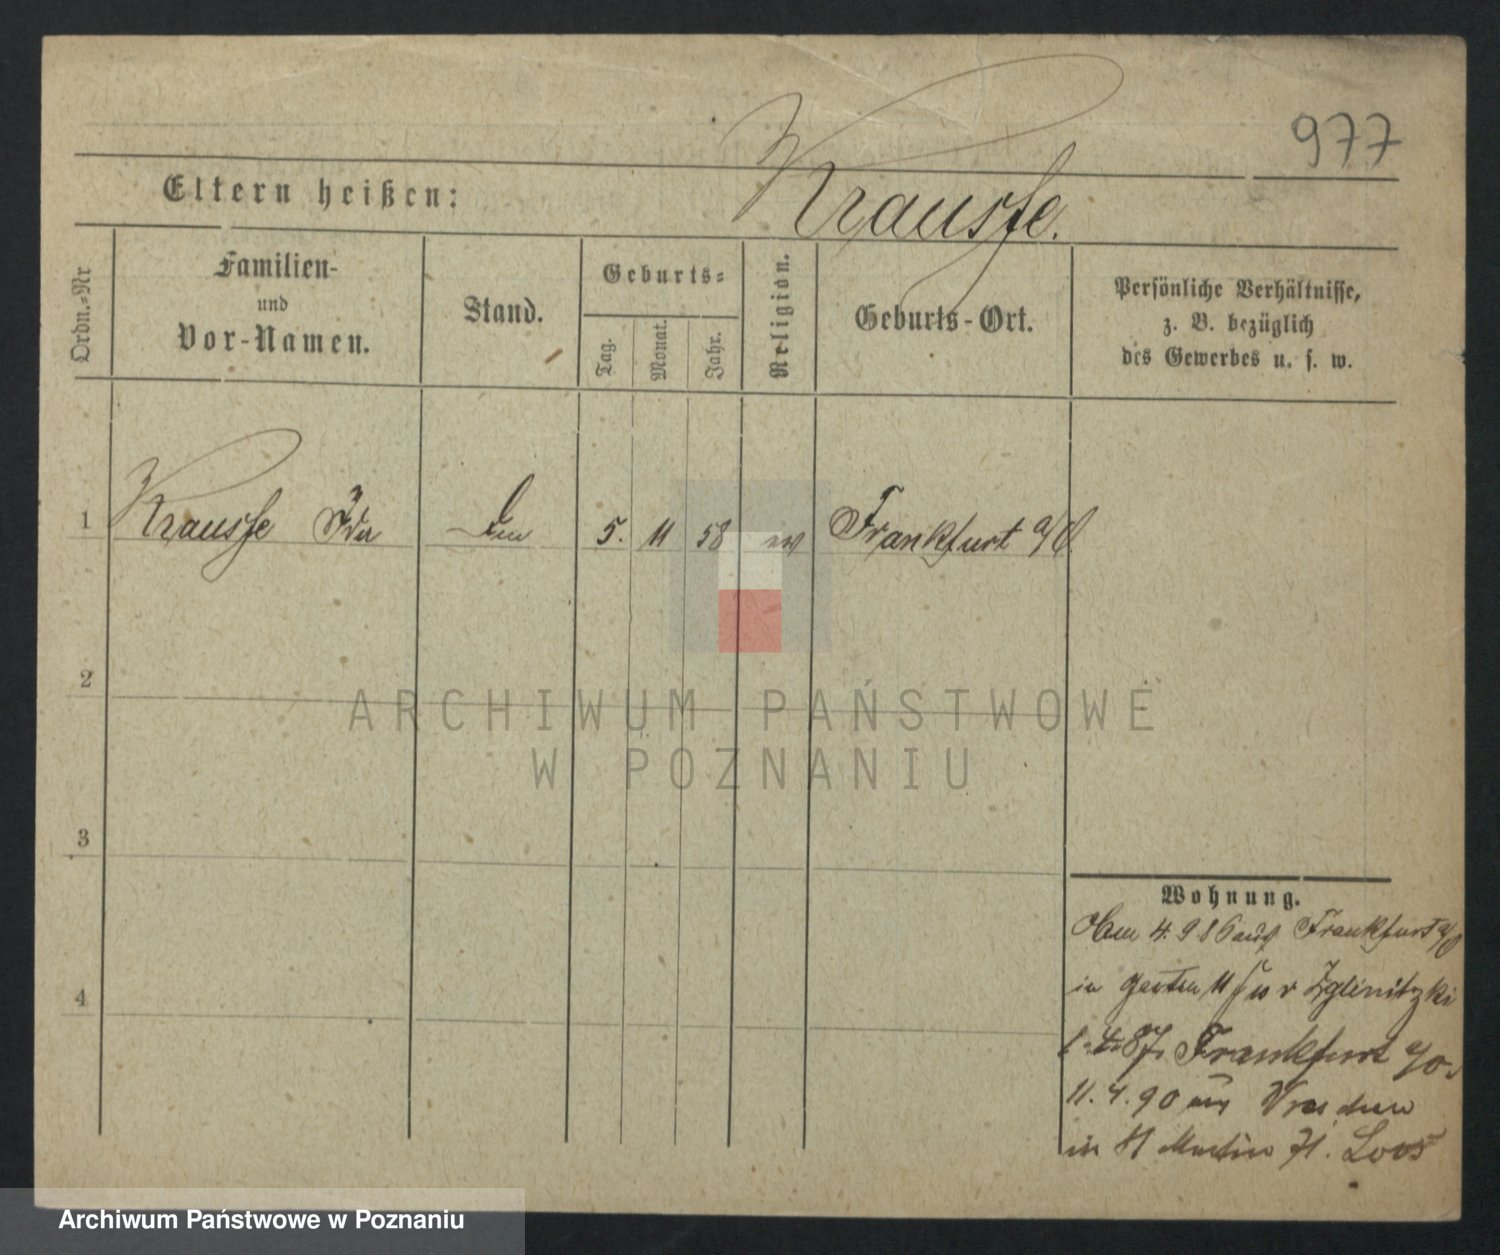 977
Eltern heißen: Krausse.
Ordn.-Nr
Familien-
und
Vor-Namen.
Stand.
Geburts-
Tag.
Monat.
Jahr.
Religion.
Geburts-Ort.
Persönliche Verhältnisse,
z. B. bezüglich
des Gewerbes u. s. w.
1 Krausse Ida 5. 11 58 ev Frankfurt a/O.
2
3
4
Wohnung.
4. 9 86 aus Frankfurt a/O
in Garten 11 v Zglinitzki
1. 4. 87. Frankfurt a/O.
11. 4. 90 aus Dresden
in St Martin 71. Loos
ARCHIWUM PAŃSTWOWE
W POZNANIU
Archiwum Państwowe w Poznaniu